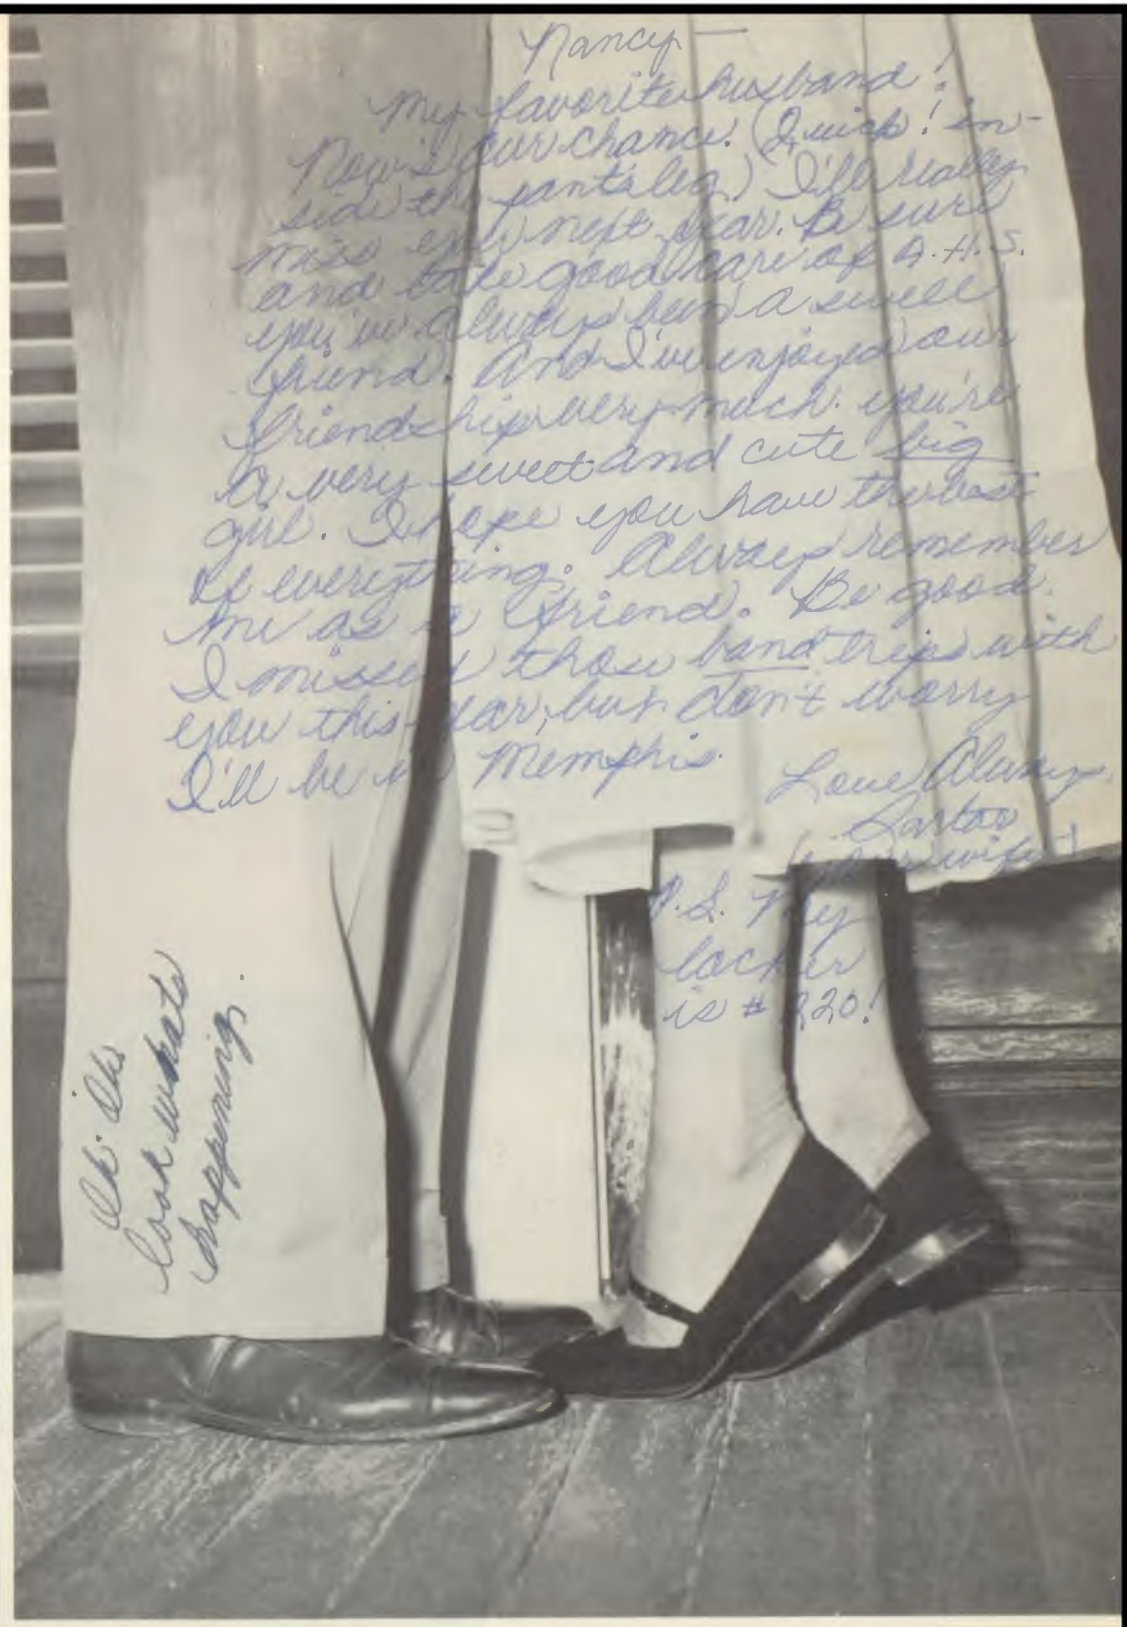 Nancy—
My favorite husband!
Now's our chance. (Quick! in-
side the pants leg.) I'll really
miss you next year. Be sure
and take good care of A.H.S.
you've always been a sweet
friend. And I've enjoyed our
friendship very much. you're
a very sweet and cute big
girl. I hope you have the best
of everything. Always remember
me as a friend. Be good.
I missed those band trips with
you this year, but don't worry
I'll be in Memphis.
Love Always,
(your wife)
P.S. My
locker
is # 220!
Oh. Oh.
look whats
happening.